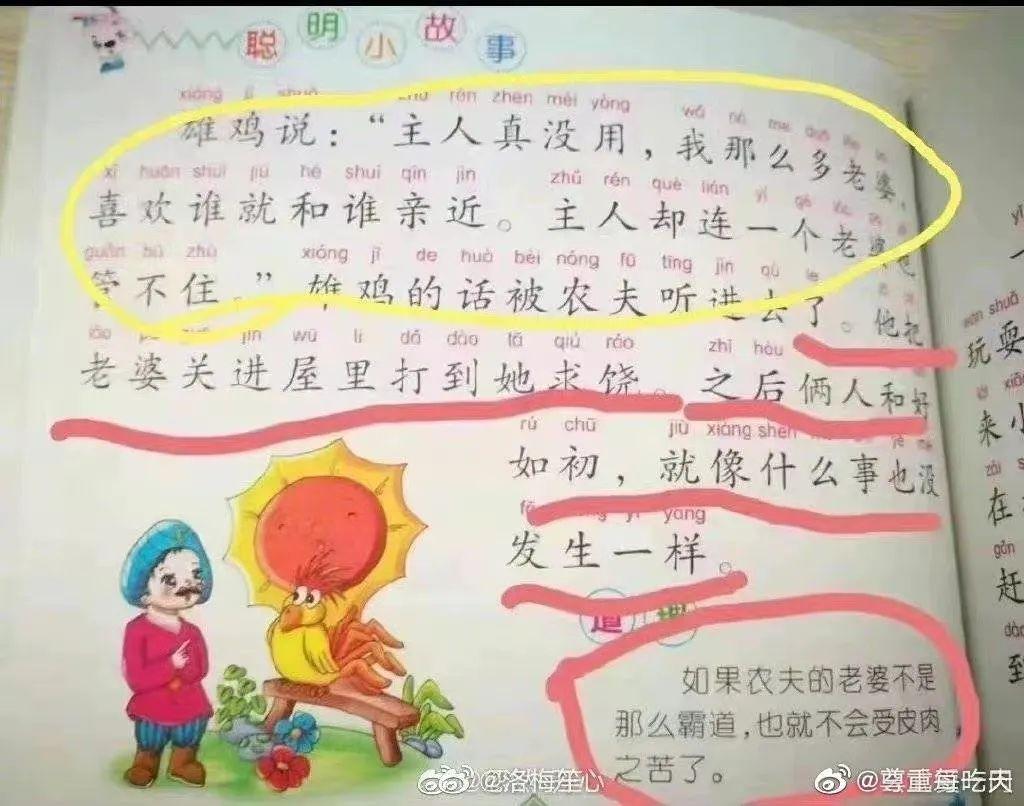 聪明小故事
xióng jī shuō zhǔ rén zhēn méi yòng
雄鸡说：“主人真没用，我那么多老婆，
xǐ huān shuí jiù hé shuí qīn jìn zhǔ rén què lián yí gè
喜欢谁就和谁亲近。主人却连一个老婆也
guǎn bú zhù xióng jī de huà bèi nóng fū tīng jìn qù le
管不住。”雄鸡的话被农夫听进去了。他把
jìn wū li dǎ dào tā qiú ráo zhī hòu
老婆关进屋里打到她求饶。之后俩人和好
rú chū jiù xiàng shén
如初，就像什么事也没
yàng
发生一样。
道理
如果农夫的老婆不是
那么霸道，也就不会受皮肉
之苦了。
wán shuǎ
玩耍
来小
zài
在
gǎn
赶
到
@洛梅笙心
@尊重每吃肉